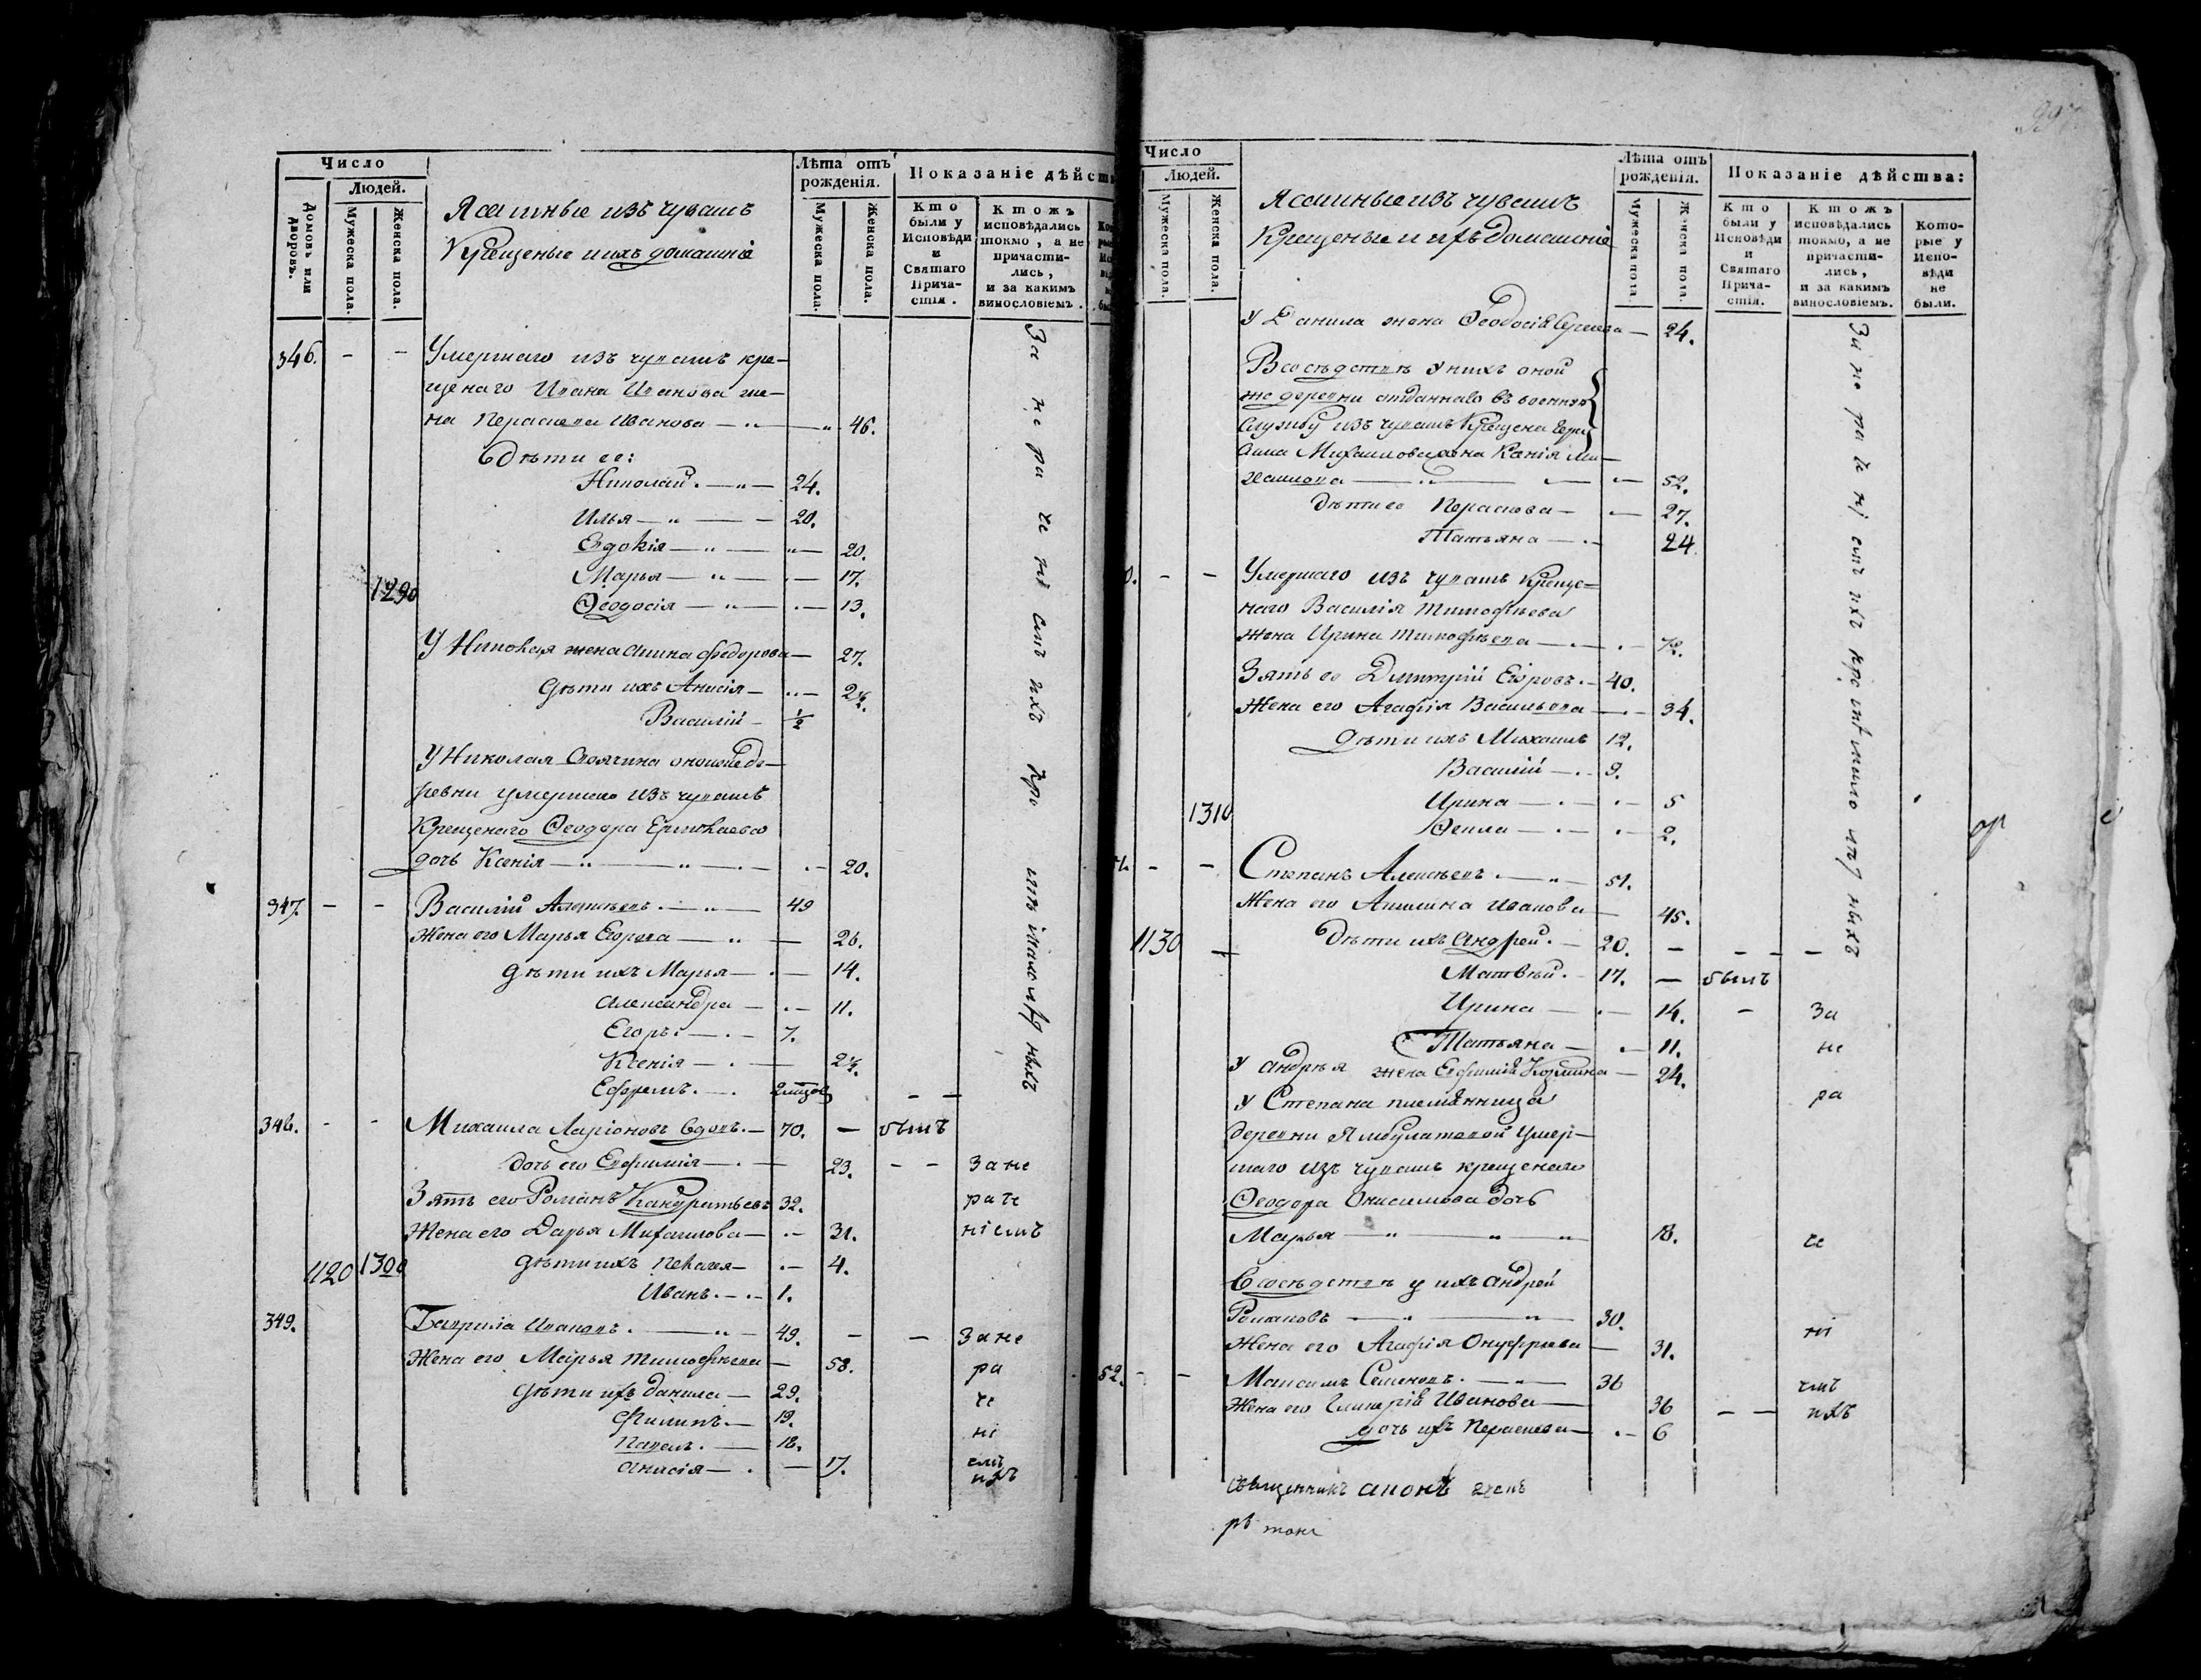 Число
Людей.
Домовъ или дворовъ.
Мужеска пола.
Женска пола.
Ясашные изъ чувашъ
Крещеные и ихъ домашніе
Лѣта отъ рожденія.
Мужеска пола.
Женска пола.
Показаніе дѣйств
Кто были у Исповѣди и Святаго Причастія.
Ктожъ исповѣдались токмо, а не причастились, и за какимъ винословіемъ.
346. - - Умершаго изъ чувашъ кре-
щенаго Ивана Иванова же-
на Параскева Иванова 46.
Дѣти ее:
Николай. 24.
Илья 20.
Евдокія 20.
Марья 17.
1290 Ѳеодосія 13.
У Николая жена Анна Федорова 27.
Дѣти ихъ Анисія 2½.
Василій ½
У Николая своячина оной же де-
ревни умершаго изъ чувашъ
Крещенаго Ѳеодора Ермолаева
дочь Ксенія 20.
347. - - Василій Алексѣевъ. 49
Жена его Марья Егорова 26.
Дѣти ихъ Марья 14.
Александра 11.
Егоръ. 7.
Ксенія 2½.
Ефремъ.
За нераченіемъ ихъ про
348. - - Михаила Ларіоновъ вдовъ. 70. - былъ
Дочь его Евфимія 23. - - За не
Зять его Романъ Кандратьевъ 32. раче
Жена его Дарья Михаилова 31. ніемъ
1120 1300 Дѣти ихъ Пелагея 4.
Иванъ. 1.
349. Гаврила Ивановъ. 49. - - За не
Жена его Марья Тимофѣева 58. ра
Дѣти ихъ Данила 29. че
Филипъ. 19. ні
Павелъ. 18.
Анисія 17. емъ
ихъ
Число
Людей.
Мужеска пола.
Женска пола.
Ясашные изъ чувашъ
Крещеные и ихъ домашніе
Лѣта отъ рожденія.
Мужеска пола
Женска пола.
Показаніе дѣйства:
Кто были у Исповѣди и Святаго Причастія.
Ктожъ исповѣдались токмо, а не причастились, и за какимъ винословіемъ.
Которые у Исповѣди не были.
У Данила жена Ѳеодосія Сергеева 24.
Въ сосѣдствѣ у нихъ оной
же деревни отданнаго въ военную
службу изъ чувашъ Крещена
Михаилова
хаилова 52.
Дѣти ее Параскева 27.
Татьяна 24.
0. - - Умершаго изъ чувашъ Креще-
наго Василія Тимофѣева
жена Ирина Тимофѣева 72.
Зять ее Дмитрій Егоровъ. 40.
Жена его Агафія Васильева 34.
Дѣти ихъ Михаилъ 12.
Василій 9.
1310 Ирина 5
Ѳекла 2.
За нераченіемъ ихъ про
- - Степанъ Алексѣевъ. 51.
Жена его Акилина Иванова 45.
1130 Дѣти ихъ Андрей. 20. - - - -
Матвѣй. 17. - былъ
Ирина 14. - За
Татьяна 11. не
У Андрея жена Евфимія Козмина 24.
У Степана племянница ра
деревни Ямбулатовой умер-
шаго изъ чувашъ крещенаго
Ѳеодора Онисимова дочь
Марья 18. че
Въ сосѣдствѣ у ихъ Андрей
Романовъ 30. ні
Жена его Агафія Онуфріева 31.
52. - - Максимъ Семеновъ. 36 емъ
Жена его Гликерія Иванова 36 - - ихъ
дочь ихъ Параскева 6
Священникъ